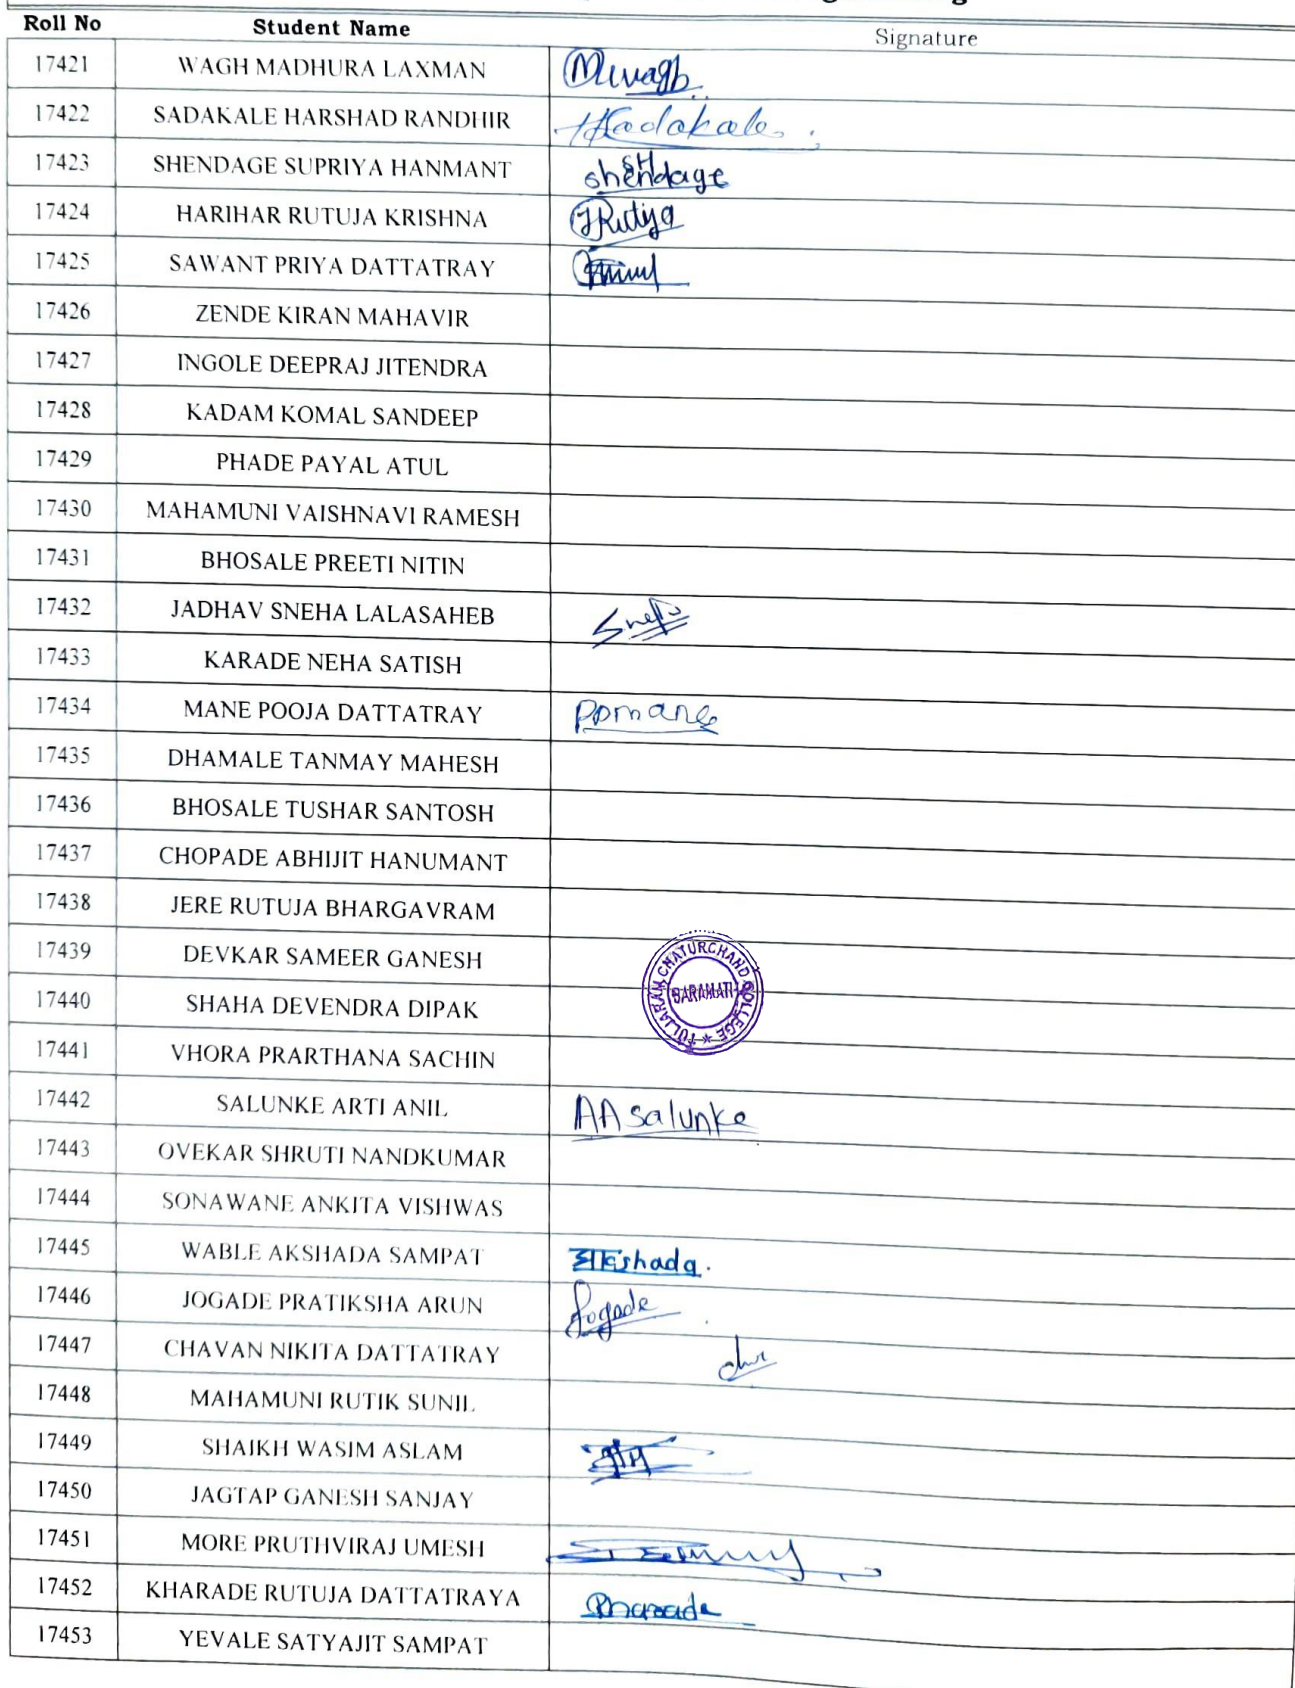 Roll No Student Name Signature
17421 WAGH MADHURA LAXMAN
17422 SADAKALE HARSHAD RANDHIR HSadakale
17423 SHENDAGE SUPRIYA HANMANT SH shendage
17424 HARIHAR RUTUJA KRISHNA
17425 SAWANT PRIYA DATTATRAY
17426 ZENDE KIRAN MAHAVIR
17427 INGOLE DEEPRAJ JITENDRA
17428 KADAM KOMAL SANDEEP
17429 PHADE PAYAL ATUL
17430 MAHAMUNI VAISHNAVI RAMESH
17431 BHOSALE PREETI NITIN
17432 JADHAV SNEHA LALASAHEB
17433 KARADE NEHA SATISH
17434 MANE POOJA DATTATRAY PDmane
17435 DHAMALE TANMAY MAHESH
17436 BHOSALE TUSHAR SANTOSH
17437 CHOPADE ABHIJIT HANUMANT
17438 JERE RUTUJA BHARGAVRAM
17439 DEVKAR SAMEER GANESH
17440 SHAHA DEVENDRA DIPAK
TULJARAM CHATURCHAND COLLEGE
BARAMATI
17441 VHORA PRARTHANA SACHIN
17442 SALUNKE ARTI ANIL AAsalunke
17443 OVEKAR SHRUTI NANDKUMAR
17444 SONAWANE ANKITA VISHWAS
17445 WABLE AKSHADA SAMPAT
17446 JOGADE PRATIKSHA ARUN Jogade
17447 CHAVAN NIKITA DATTATRAY
17448 MAHAMUNI RUTIK SUNIL
17449 SHAIKH WASIM ASLAM
17450 JAGTAP GANESH SANJAY
17451 MORE PRUTHVIRAJ UMESH
17452 KHARADE RUTUJA DATTATRAYA
17453 YEVALE SATYAJIT SAMPAT